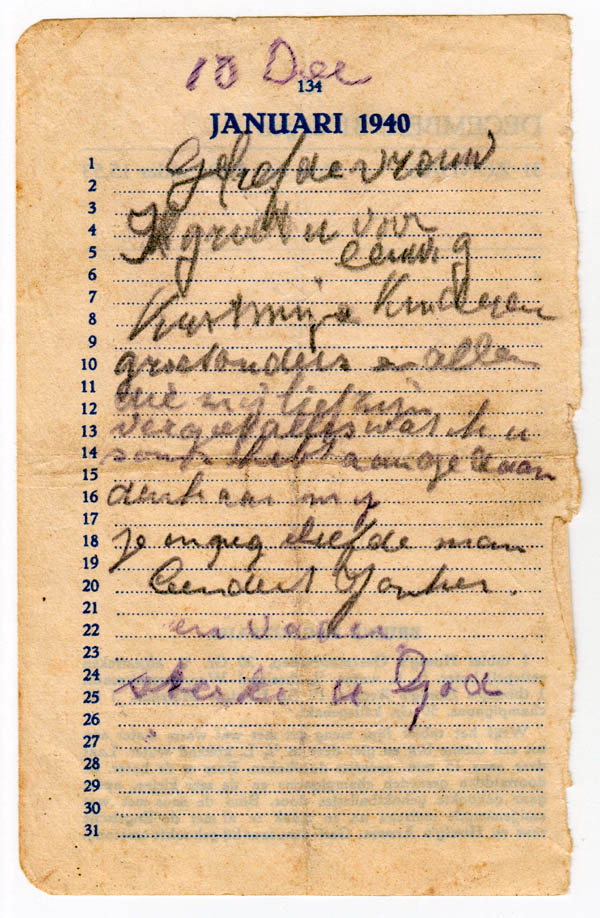 13 Dec
134
JANUARI 1940
1
Geliefde vrouw
2
3
Ik groet u voor
4
eeuwig
5
6
7
Kust mijn Kinderen
8
9
groet ouders en allen
10
11
die mij lief zijn
12
vergeef alles wat ik u
13
14
soms heb aangedaan
15
denk aan mij
16
17
je innig liefde man
18
19
Leendert Jonker.
20
21
en vader
22
23
24
sterke u God
25
26
27
28
29
30
31